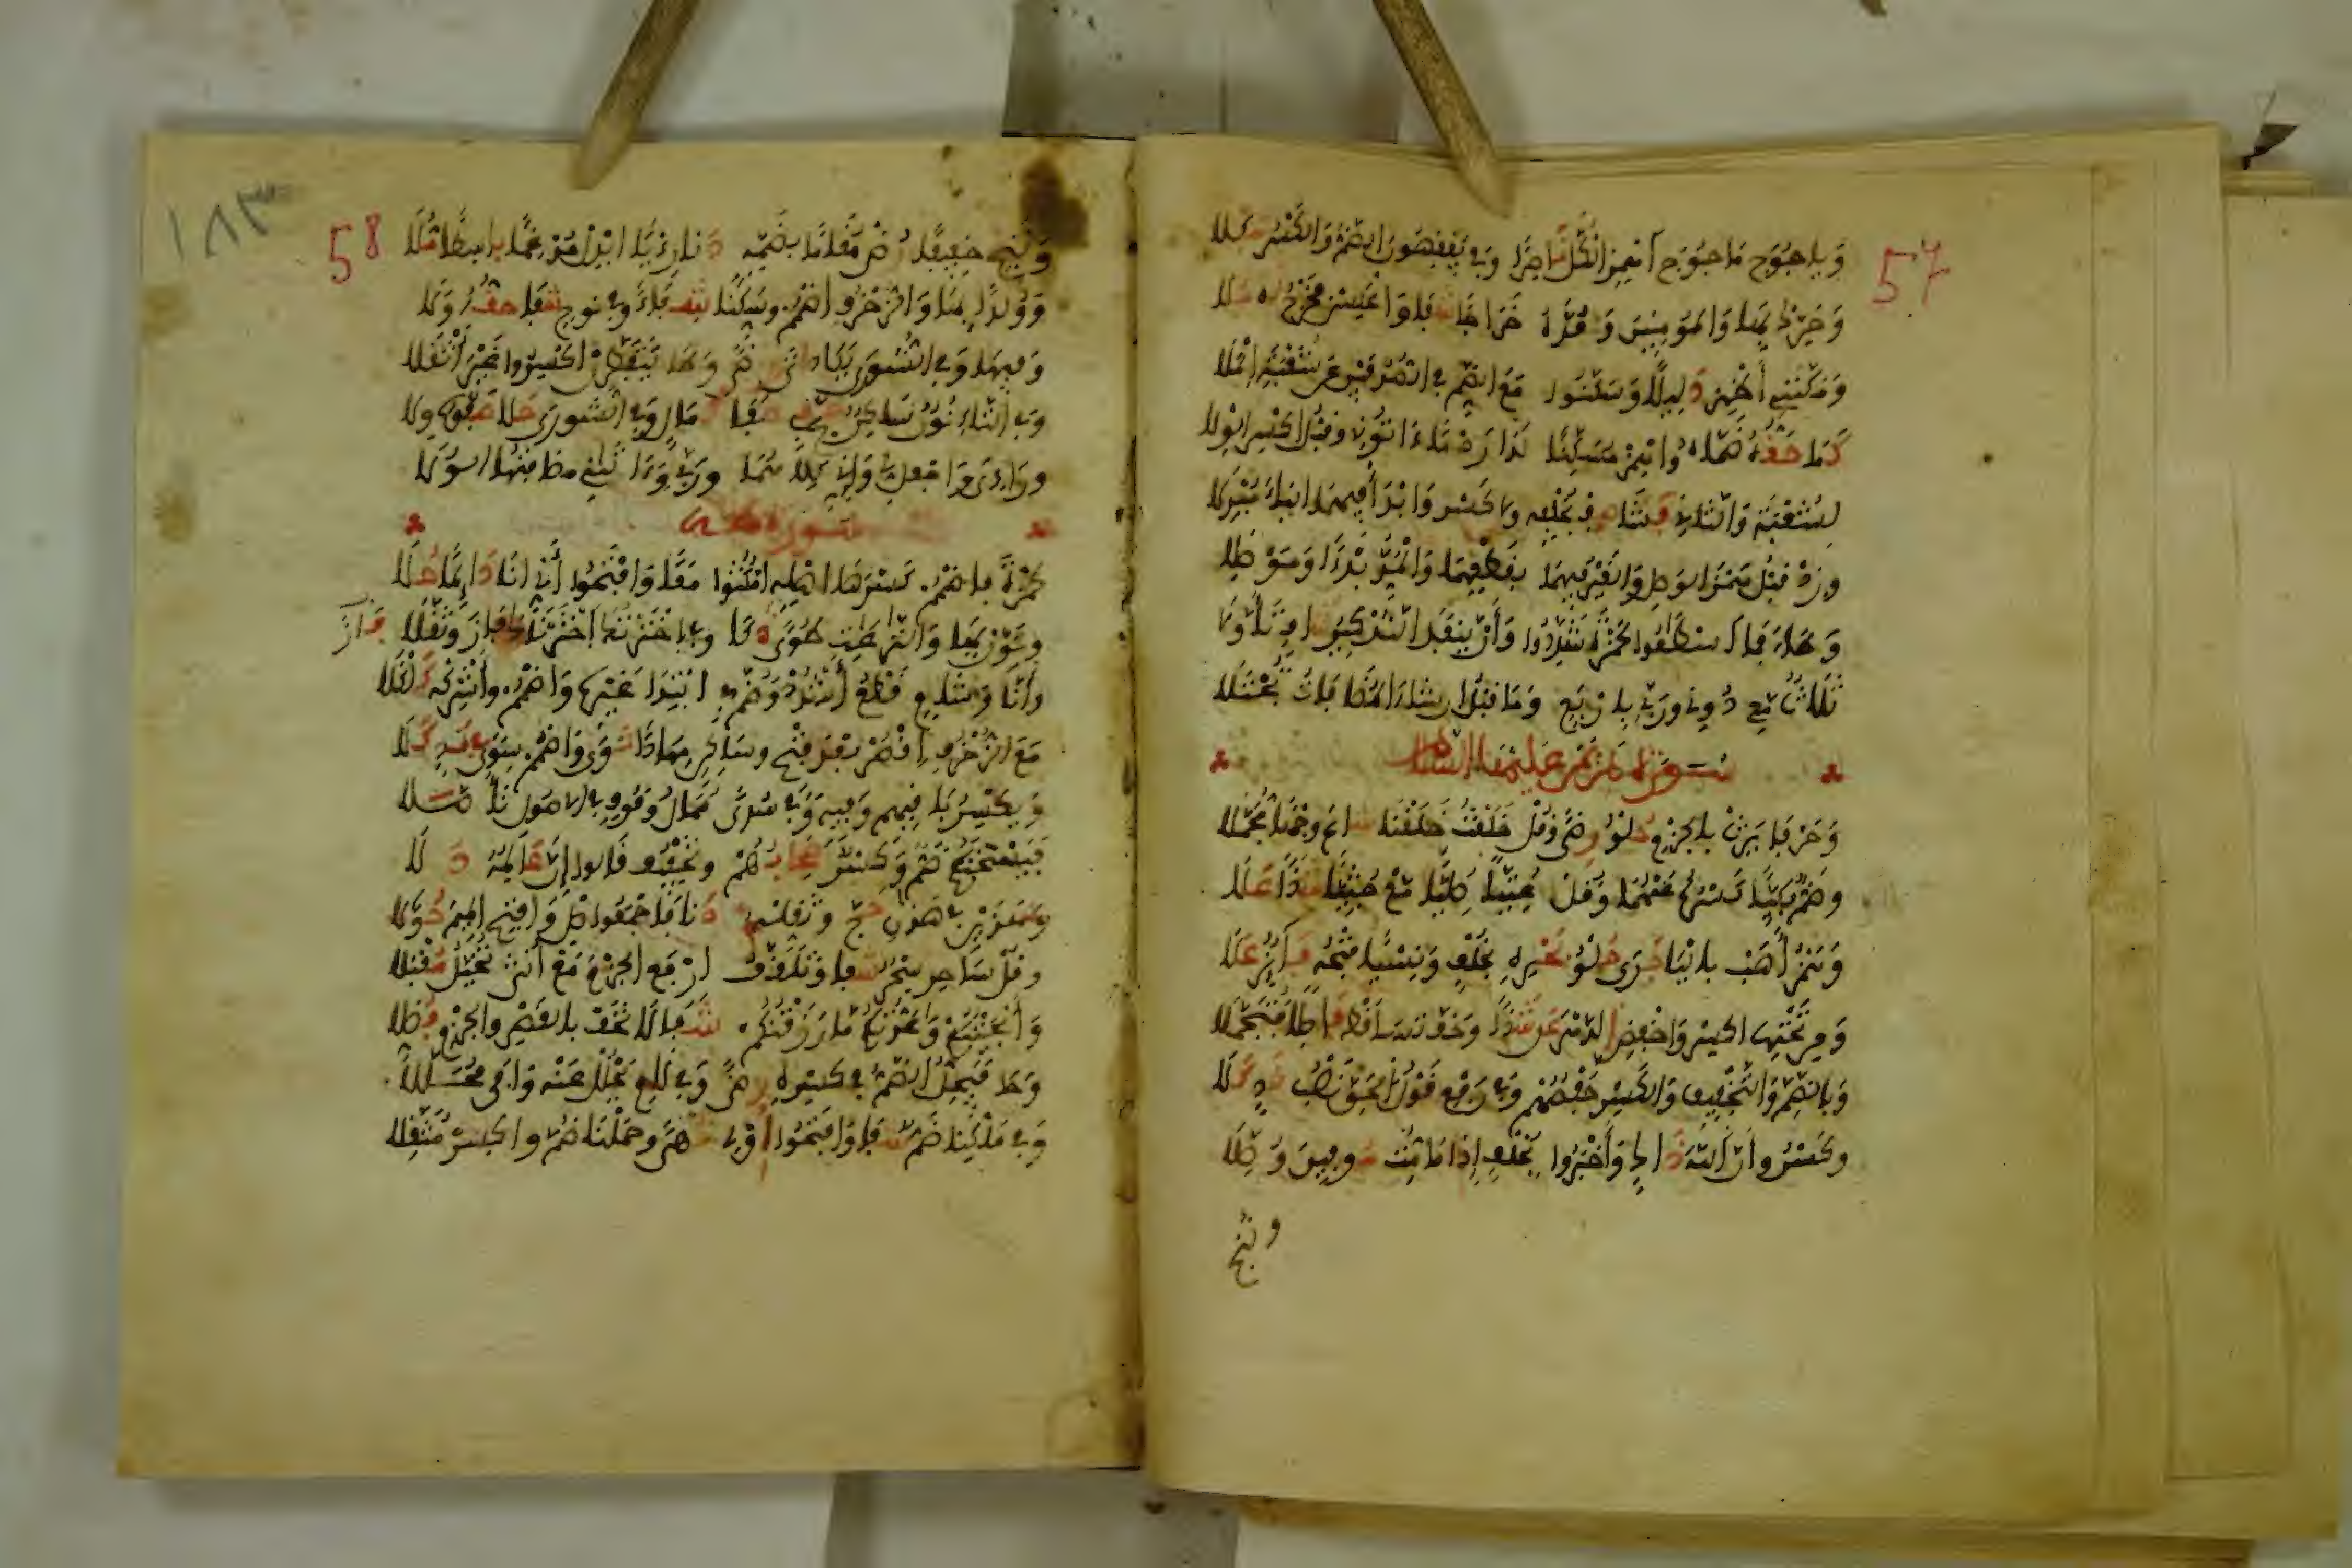 57
وياجوج ماجوج اهمز الكل ناصرا وفي يفقهون الضم والكسر شكلا
وحرك بها والمومنين ومده خراجا شفا واعكس فخرج له ملا
ومكنني أظهر دليلا وسكنوا مع الضم في الصدفين عن شعبة الملا
كما حقه ضماه واهمز مسكنا لذا ردما ءاتوني وقبل اكسر الولا
لشعبة والثاني فشا صف بخلفه ولا كسر وابدأ فيهما الياء مبدلا
وزد قبل همز الوصل والغير فيهما بقطعهما والمد بدءا وموصلا
وطاء فما اسطاعوا لحمزة شددوا وأن ينفد التذكير شاف تأولا
ثلاث معي دوني وربي باربع وما قبل ان شاء المضافات تجتلا
سورة مريم عليها السلام
وحرفا يرث بالجزم حلو رضى وقل خلقت خلقنا شاع وجها مجملا
وضم بكيا كسره عنهما وقل عتيا صليا مع جثيا شذا علا
وهمز أهب باليا جرى حلو بحره بخلف ونسيا فتحه فائز علا
ومن تحتها اكسر واخفض الدهر عن شذا وخف تساقط فاصلا فتحملا
وبالضم والتخفيف والكسر حفصهم وفي رفع قول الحق نصب ند كلا
وكسر وان الله ذاك وأخبروا بخلف إذا ما مت موفين وصلا
وننج
١٨٣
58
وننجي خفيفا رض مقاما بضمه دنا رءيا ابدل مدغما باسطا ملا
وولدا بها والزخرف اضمم وسكنا شفاء وفي نوح شفا حقه ولا
وفيها وفي الشورى يكاد اتى رضا وطا يتفطرن اكسروا غير أثقلا
وفي التاء نون ساكن حج في صفا كمال وفي الشورى حلا صفوه ولا
وراءي واجعل لي واني كلاهما وربي وءاتاني مضافاتها الولا
سورة طه
لحمزة فاضمم كسر ها اهله امكثوا معا وافتحوا أني انا دائما حلا
ونون بها والنازعات طوى ذكا وفي اخترتك اخترناك فاز وثقلا
وأنا وشام قطع أشدد وضم في ابتدا غيره واضمم وأشركه كلكلا
مع الزخرف اقصر بعد فتح وساكن مهادا ثوى واضمم سوى في ند كلا
ويكسر باقيهم وفيه وفي سدى ممال وقوف في الاصول تأصلا
فيسحتكم ضم وكسر صحابهم وتخفيف قالوا إن عالمه دلا
وهذين في هذان حج وثقله دنا فاجمعوا صل وافتح الميم حولا
وقل ساحر سحر شفا وتلقف ارفع الجزم مع أنثى يخيل مقبلا
وأنجيتكم واعدتكم ما رزقتكم شفا لا تخف بالقصر والجزم فصلا
وحا فيحل الضم في كسره رضا وفي لام يحلل عنه وافى محللا
وفي ملكنا ضم شفا وافتحوا أولي نهى وحملنا ضم واكسر مثقلا